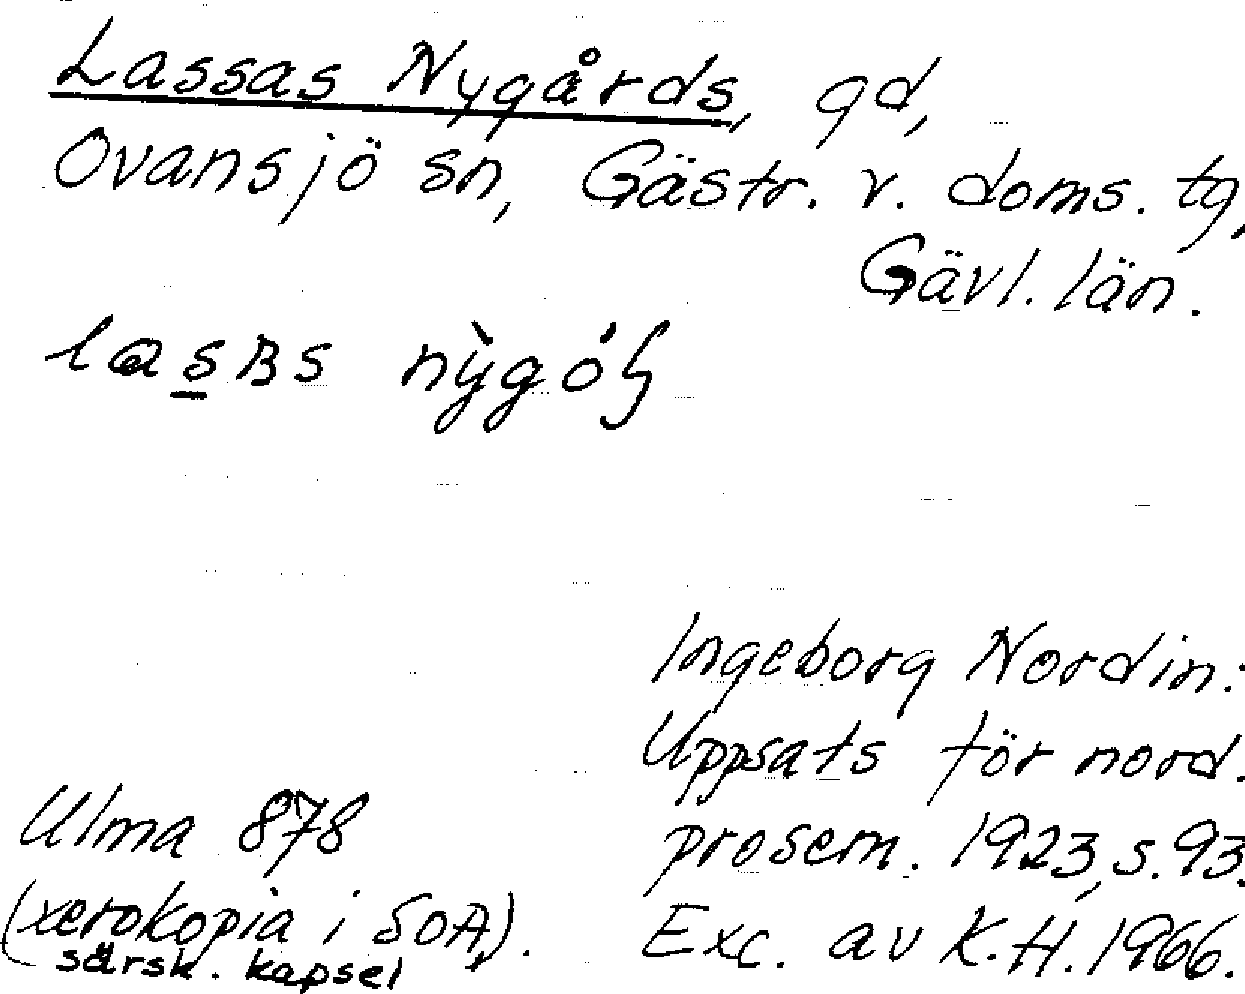 Lassas Nygårds, gd,
Ovansjö sn, Gästr. v. doms. tg,
Gävl. län.
Ingeborg Nordin:
Uppsats för nord.
prosem. 1923, s. 93.
Exc. av K.H. 1966.
Ulma 878
(xerokopia i SOA,).
särsk. kapsel